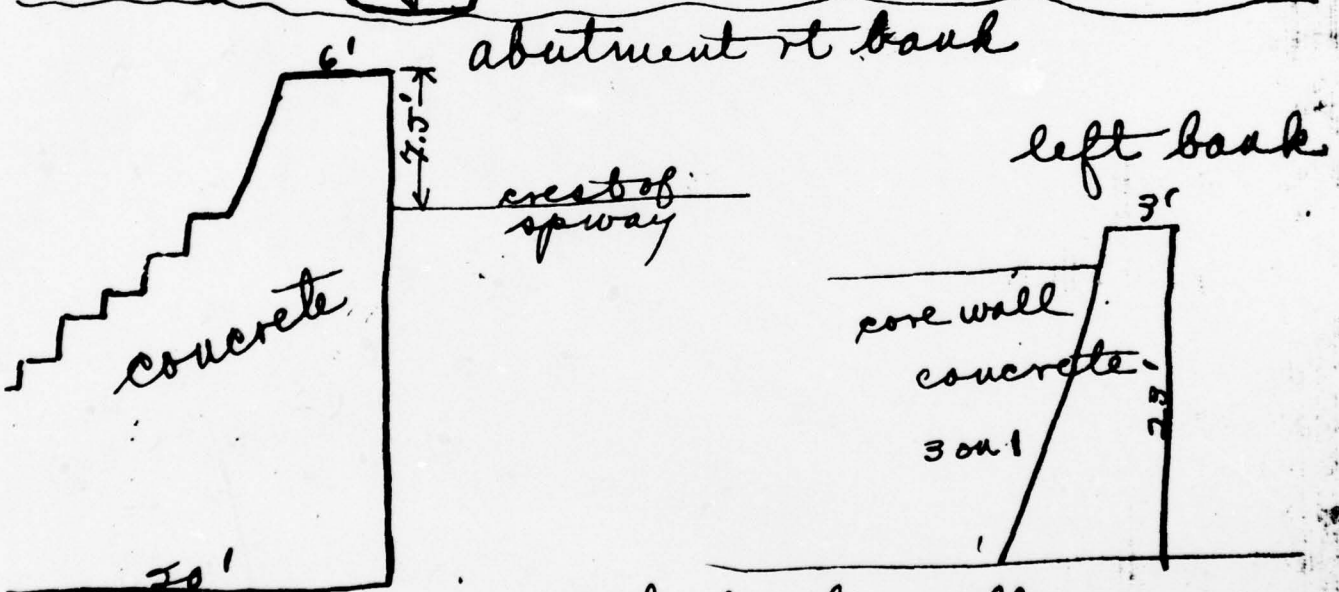 abutment rt bank
6'
7.5'
crest of
spway
concrete
left bank
3'
core wall
concrete
3 on 1